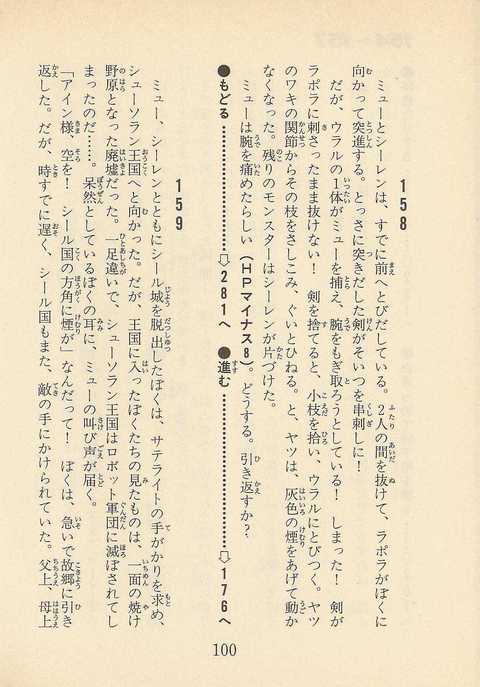 158
ミューとシーレンは、すでに前へとびだしている。2人の間を抜けて、ラポラがぼくに
向かって突進する。とっさに突きだした剣がそいつを串刺しに！
だが、ウラルの1体がミューを捕え、腕をもぎ取ろうとしている！　しまった！　剣が
ラポラに刺さったまま抜けない！　剣を捨てると、小枝を拾い、ウラルにとびつく。ヤツ
のワキの関節からその枝をさしこみ、ぐいとひねる。と、ヤツは、灰色の煙をあげて動か
なくなった。残りのモンスターはシーレンが片づけた。
ミューは腕を痛めたらしい（HPマイナス8）。どうする。引き返すか？
●もどる…………………⇨281へ　●進む…………………⇨176へ
159
ミュー、シーレンとともにシール城を脱出したぼくは、サテライトの手がかりを求め、
シューソラン王国へと向かった。だが、王国に入ったぼくたちの見たものは、一面の焼け
野原となった廃墟だった。一足違いで、シューソラン王国はロボット軍団に滅ぼされてし
まったのだ……。呆然としているぼくの耳に、ミューの叫び声が届く。
「アイン様、空を！　シール国の方角に煙が」なんだって！　ぼくは、急いで故郷に引き
返した。だが、時すでに遅く、シール国もまた、敵の手にかけられていた。父上、母上
100